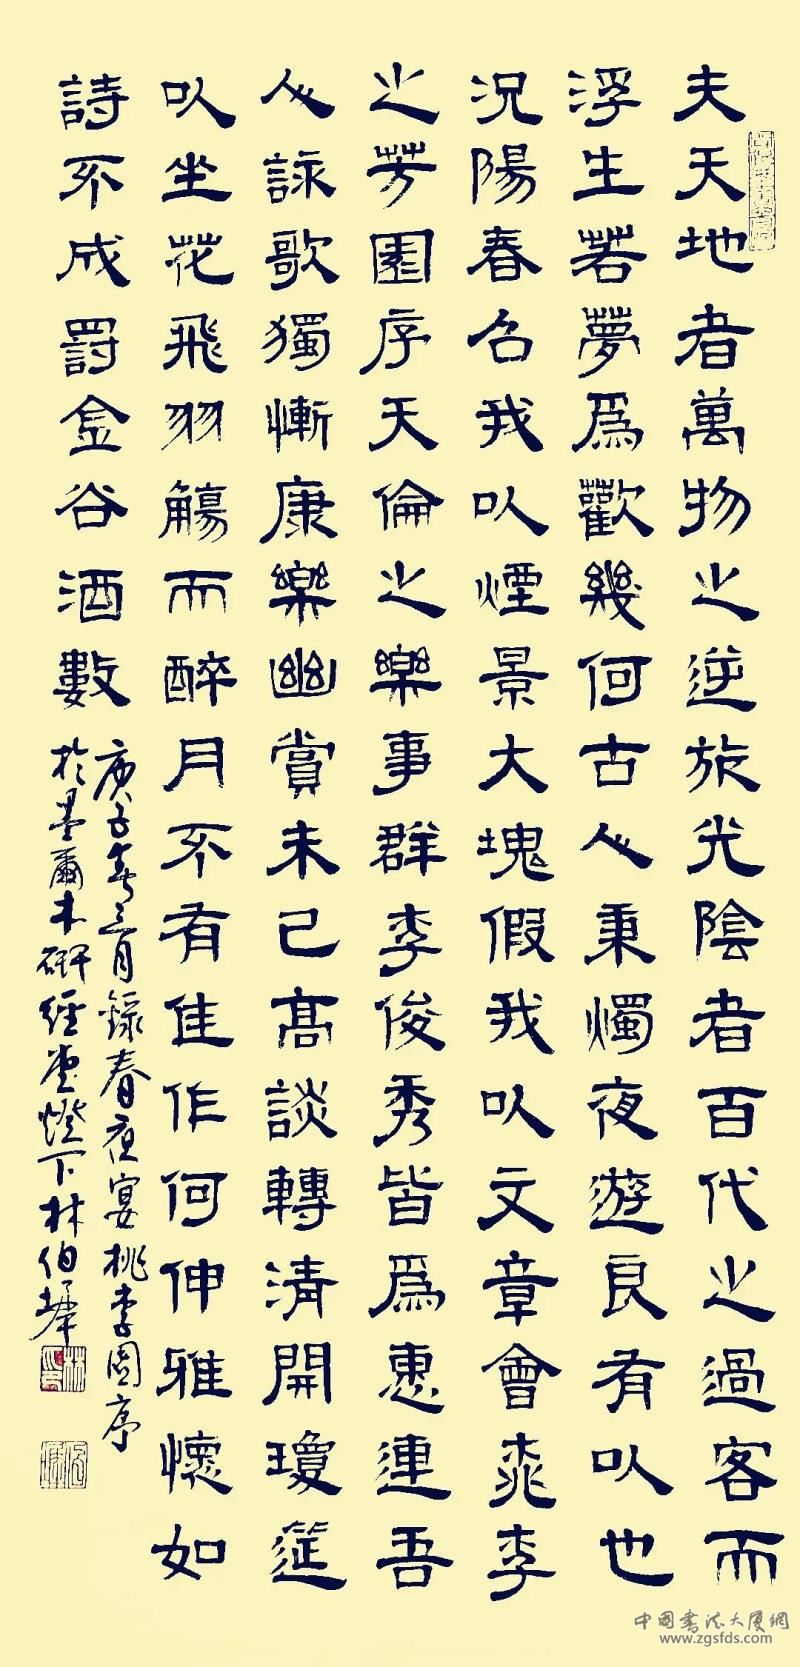 夫天地者萬物之逆旅光陰者百代之過客而
浮生若夢為歡幾何古人秉燭夜遊良有以也
況陽春召我以煙景大塊假我以文章會桃李
之芳園序天倫之樂事群季俊秀皆為惠連吾
人詠歌獨慚康樂幽賞未已高談轉清開瓊筵
以坐花飛羽觴而醉月不有佳作何伸雅懷如
詩不成罰金谷酒數
庚子年三月錄春夜宴桃李園序
於墨爾本研經堂燈下林伯墀
中國書法大廈網
www.zgsfds.com